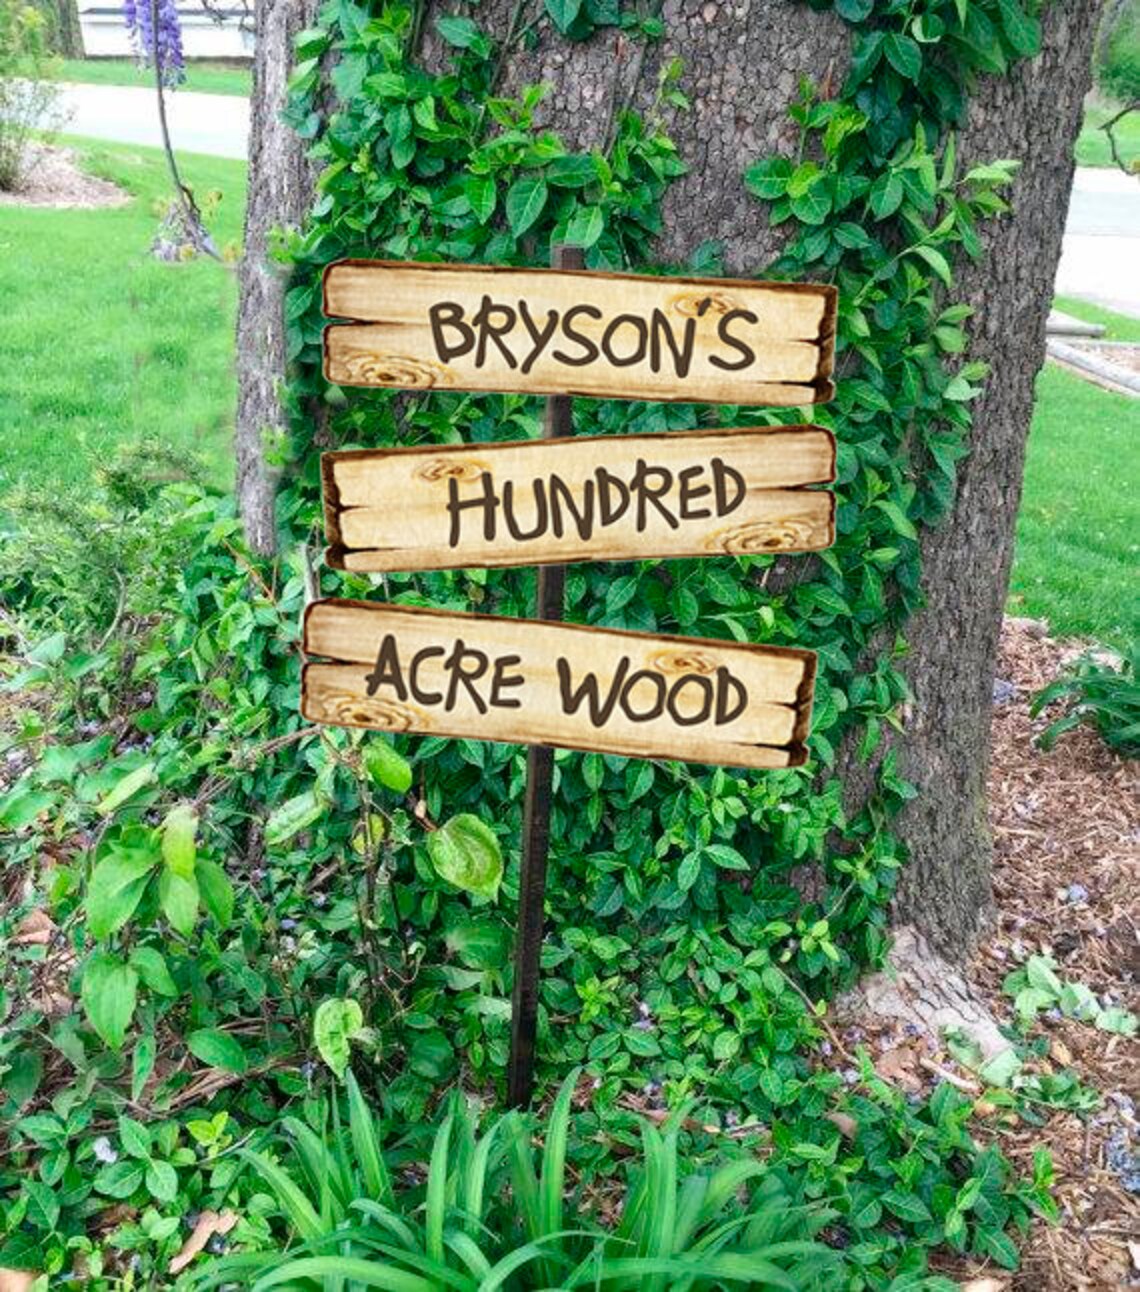 BRYSON'S
HUNDRED
ACRE WOOD